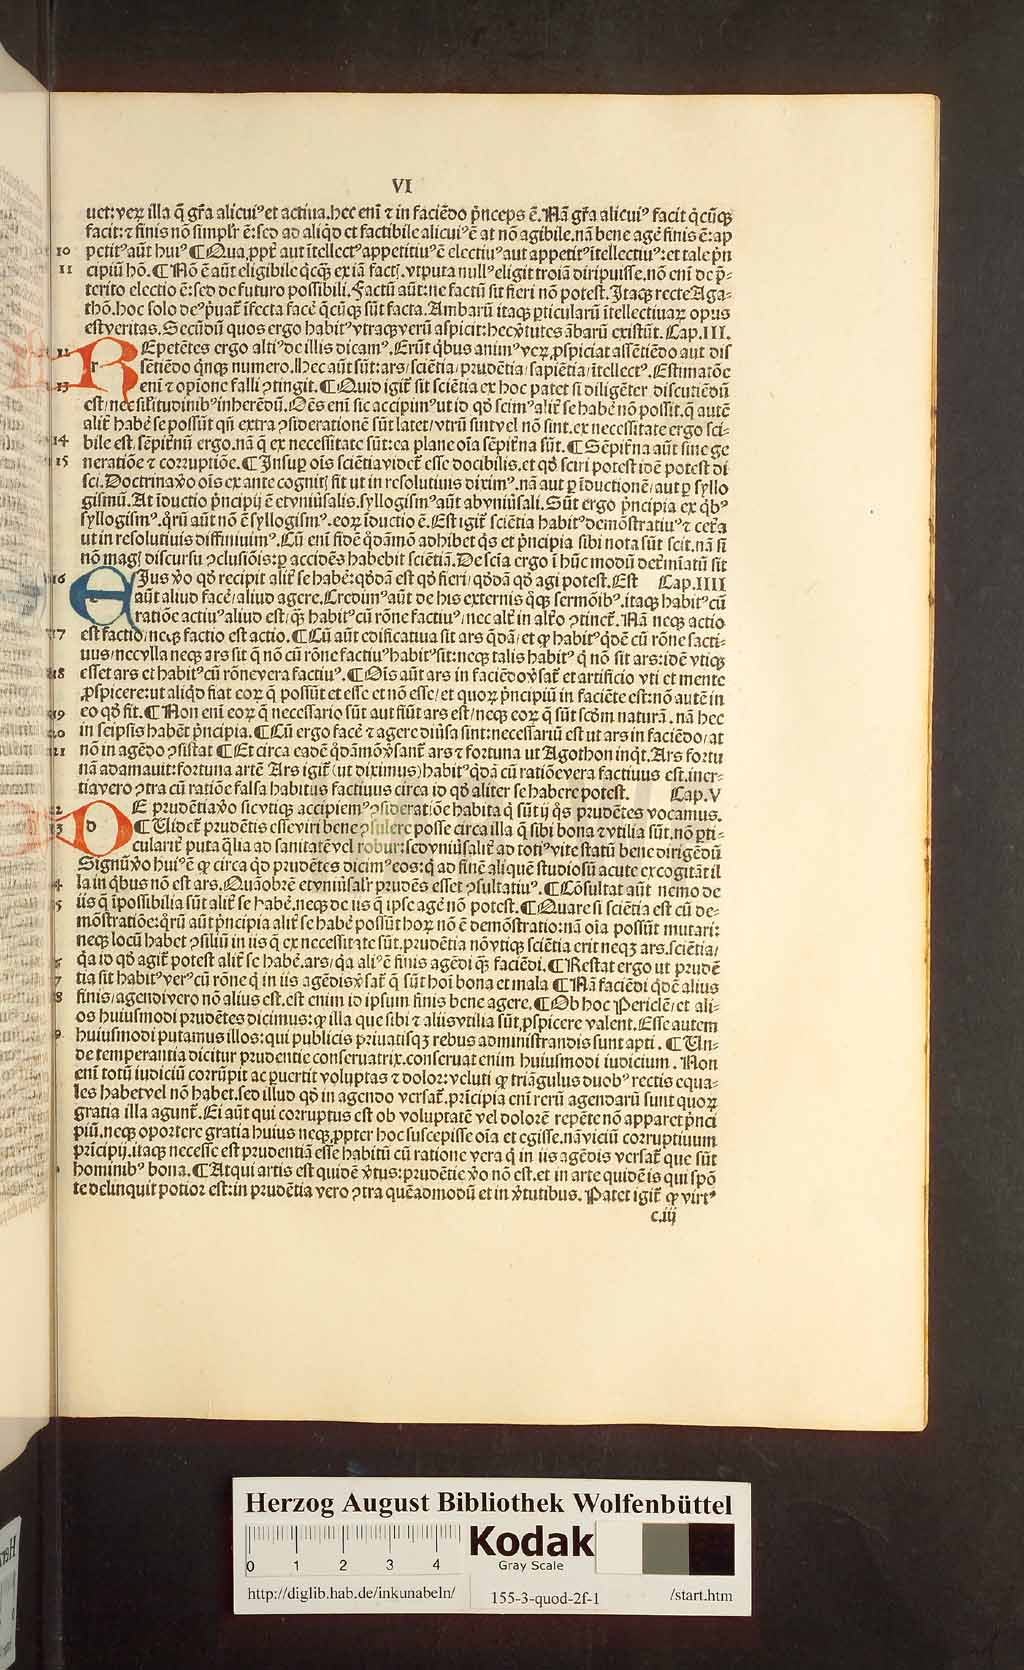 VI
uet: veꝝ illa q̃ gr̃a alicuiꝰ et actiua. hec enĩ ⁊ in faciẽdo p̃nceps ẽ. Nã gr̃a alicuiꝰ facit q̇cũqꝫ
facit: ⁊ finis nõ simplr̃ ẽ: sed ad aliq̇d et factibile alicuiꝰ ẽ at nõ agibile. nã bene agẽ finis ẽ: ap
10 petitꝰ aũt huiꝰ ¶ Qua ꝓpt̃ aut ĩtellectꝰ appetitiuꝰ ẽ electiuꝰ aut appetitꝰ ĩtellectiuꝰ: et tale p̃n
11 cipiũ hõ. ¶ Nõ ẽ aũt eligibile q̇cq̃ ex iã factꝭ. vtputa nullꝰ eligit troiã diripuisse. nõ enĩ de p̃-
terito electio ẽ: sed de futuro possibili. Factũ aũt: ne factũ sit fieri nõ potest. Itaqꝫ recte Aga-
thõ. hoc solo deꝰ p̃uat̃ ĩfecta facẽ q̃cũqꝫ sũt facta. Ambarũ itaqꝫ ꝑticularũ ĩtellectiuaꝝ opus
est veritas. Secũdũ quos ergo habitꝰ vtraqꝫ verũ aspicit: hec v̓tutes ãbarũ existũt. Cap. III.
12 REpetẽtes ergo altiꝰ de illis dicamꝰ. Erũt q̇bus animꝰ veꝝ ꝓspiciat assẽtiẽdo aut dis
r sẽtiẽdo q̇nqꝫ numero. Hec aũt sũt: ars/ sciẽtia/ prudẽtia/ sapiẽtia/ ĩtellectꝰ. Estimatõe
13 enĩ ⁊ opione falli ꝯtingit. ¶ Quid igit̃ sit sciẽtia ex hoc patet si diligẽter discutiẽdũ
est/ nec sil̓itudinibꝰ inherẽdũ. Oẽs enĩ sic accipimꝰ ut id qḋ scimꝰ alit̃ se habẽ nõ possit. q̃ autẽ
alit̃ habẽ se possũt qñ extra ꝯsiderationẽ sũt latet/ vtrũ sint vel nõ sint. ex necessitate ergo sci-
14 bile est. sẽpit̃nũ ergo. nã q̃ ex necessitate sũt: ea plane oĩa sẽpit̃na sũt. ¶ Sẽpit̃na aũt sine ge
15 neratiõe ⁊ corruptiõe. ¶ Insuꝑ oĩs sciẽtia videt̃ esse docibilis. et qḋ sciri potest idẽ potest di
sci. Doctrina v̓o oĩs ex ante cognitꝭ fit ut in resolutiuis diximꝰ. nã aut ꝑ ĩductionẽ/ aut ꝑ syllo
gismũ. At ĩductio p̃ncipij ẽ et vniu̓salis. syllogismꝰ aũt ab vniu̓sali. Sũt ergo p̃ncipia ex q̇bꝰ
syllogismꝰ. q̃rũ aũt nõ ẽ syllogismꝰ. eoꝝ ĩductio ẽ. Est igit̃ sciẽtia habitꝰ demõstratiuꝰ ⁊ cet̃a
ut in resolutiuis diffiniuimꝰ. Cũ enĩ fidẽ q̇dãmõ adhibet q̇s et p̃ncipia sibi nota sũt scit. nã si
nõ magꝭ discursu ꝯclusiõis: ꝑ accidẽs habebit sciẽtiã. De scĩa ergo ĩ hũc modũ det̃miatũ sit
16 EIus v̓o qḋ recipit alit̃ se habẽ: q̇ddã est qḋ fieri/ q̇ddã qḋ agi potest. Est Cap. IIII
e aũt aliud facẽ/ aliud agere. Credimꝰ aũt de his externis q̇qꝫ sermõibꝰ. itaqꝫ habitꝰ cũ
ratiõe actiuꝰ aliud est/ q̃ habitꝰ cũ rõne factiuꝰ/ nec alt̃ in alt̃o ꝯtinet̃. Nã neqꝫ actio
17 est factio/ neqꝫ factio est actio. ¶ Cũ aũt edificatiua sit ars q̇dã/ et ꝙ habitꝰ q̇dẽ cũ rõne facti-
uus/ nec vlla neqꝫ ars sit q̃ nõ cũ rõne factiuꝰ habitꝰ sit: neqꝫ talis habitꝰ q̇ nõ sit ars: idẽ vtiqꝫ
18 esset ars et habitꝰ cũ rõne vera factiuꝰ. ¶ Oĩs aũt ars in faciẽdo v̓sat̃ et artificio vti et mente
ꝓspicere: ut aliq̇d fiat eoꝝ q̃ possũt et esse et nõ esse/ et quoꝝ p̃ncipiũ in faciẽte est: nõ autẽ in
19 eo qḋ fit. ¶ Non enĩ eoꝝ q̃ necessario sũt aut fiũt ars est/ neqꝫ eoꝝ q̃ sũt scḋm naturã. nã hec
20 in seipsis habẽt p̃ncipia. ¶ Cũ ergo facẽ ⁊ agere diu̓sa sint: necessariũ est ut ars in faciẽdo/ at
21 nõ in agẽdo ꝯsistat ¶ Et circa eadẽ q̇dãmõ v̓sant̃ ars ⁊ fortuna ut Agothon inq̇t. Ars fortu
nã adamauit: fortuna artẽ Ars igit̃ (ut diximus) habitꝰ q̇dã cũ ratiõe vera factiuus est. iner-
tia vero ꝯtra cũ ratiõe falsa habitus factiuus circa id qḋ aliter se habere potest. Cap. V
22 DE prudẽtia v̓o sic vtiqꝫ accipiemꝰ ꝯsideratiõe habita q̇ sũt ij q̇s prudẽtes vocamus.
d ¶ Uidet̃ prudẽtis esse viri bene ꝯsulere posse circa illa q̃ sibi bona ⁊ vtilia sũt. nõ ꝑti-
cularit̃ puta q̃lia ad sanitatẽ vel robur: sed vniu̓salit̃ ad totiꝰ vite statũ bene dirigẽdũ
Signũ v̓o huiꝰ ẽ ꝙ circa q̇d prudẽtes dicimꝰ eos: q̇ ad finẽ aliquẽ studiosũ acute excogitãt il
la in q̇bus nõ est ars. Quãobrẽ et vniu̓salr̃ prudẽs esset ꝯsultatiuꝰ. ¶ Cõsultat aũt nemo de
iis q̃ ĩpossibilia sũt alit̃ se habẽ. neqꝫ de iis q̃ ipse agẽ nõ potest. ¶ Quare si sciẽtia est cũ de-
mõstratiõe: q̃rũ aũt p̃ncipia alit̃ se habẽ possũt hoꝝ nõ ẽ demõstratio: nã oĩa possũt mutari:
neqꝫ locũ habet ꝯsiliũ in iis q̃ ex necessitate sũt. prudẽtia nõ vtiqꝫ sciẽtia erit neqꝫ ars. sciẽtia/
q̇a id qḋ agit̃ potest alit̃ se habẽ. ars/ q̇a aliꝰ ẽ finis agẽdi q̃ faciẽdi. ¶ Restat ergo ut prudẽ
tia sit habitꝰ verꝰ cũ rõne q̇ in iis agẽdis v̓sat̃ q̃ sũt hoĩ bona et mala ¶ Nã faciẽdi q̇dẽ alius
finis/ agendi vero nõ alius est. est enim id ipsum finis bene agere. ¶ Ob hoc Periclẽ/ et ali-
os huiusmodi prudẽtes dicimus: ꝙ illa que sibi ⁊ aliis vtilia sũt, ꝓspicere valent. Esse autem
huiusmodi putamus illos: qui publicis priuatisqꝫ rebus administrandis sunt apti. ¶ Un-
de temperantia dicitur prudentie conseruatrix. conseruat enim huiusmodi iudicium. Non
enĩ totũ iudiciũ corrũpit ac ꝑuertit voluptas ⁊ dolor: veluti ꝙ triãgulus duobꝰ rectis equa-
les habet vel nõ habet. sed illud qḋ in agendo versat̃. prĩcipia enĩ rerũ agendarũ sunt quoꝝ
gratia illa agunt̃. Ei aũt qui corruptus est ob voluptatẽ vel dolorẽ repẽte nõ apparet p̃nci
piũ. neqꝫ oportere gratia huius neqꝫ ꝓpter hoc suscepisse oĩa et egisse. nã viciũ corruptiuum
prĩcipij. itaqꝫ necesse est prudentiã esse habitũ cũ ratione vera q̇ in iis agẽdis versat̃ que sũt
hominibꝰ bona. ¶ Atqui artis est quidẽ v̓tus: prudẽtie v̓o nõ est. et in arte quidẽ is qui spõ
te delinquit potior est: in prudẽtia vero ꝯtra quẽadmodũ et in v̓tutibus. Patet igit̃ ꝙ virtꝰ
c.iij
Herzog August Bibliothek Wolfenbüttel
0 1 2 3 4
Kodak
Gray Scale
http://diglib.hab.de/inkunabeln/ 155-3-quod-2f-1 /start.htm